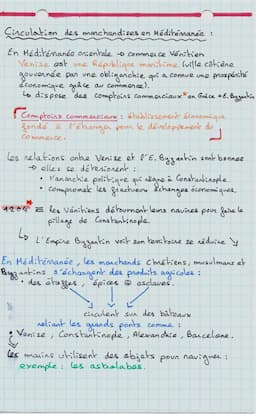 Circulation des marchandises en Méditérranée :
En Méditérranée orientale → commerce Vénitien
Venise est une République maritime (ville côtière
gouvernée par une obligarchie qui a connue une prospérité
économique grâce au commerce).
↳ dispose des comptoirs commerciaux* en Grèce + E. Byzantin
Comptoirs commerciaux : établissement économique
fondé à l'étranger pour le développement du
commerce.
Les relations entre Venise et l'E. Byzantin sont bonnes
→ elles se détériorent :
• l'anarchie politique qui règne à Constantinople.
• compromet les fructueux échanges économiques.
1204 = les Vénitiens détournent leurs navires pour faire le
pillage de Constantinople.
↳ L'Empire Byzantin voit son territoire se réduire ↘
En Méditérranée, les marchands chrétiens, musulmans et
Byzantins s'échangent des produits agricoles :
• des étoffes, épices et esclaves.
circulent sur des bateaux
reliant les grands ponts comme :
• Venise, Constantinople, Alexandrie, Barcelone.
Les marins utilisent des objets pour naviguer :
exemple : les astrolabes.